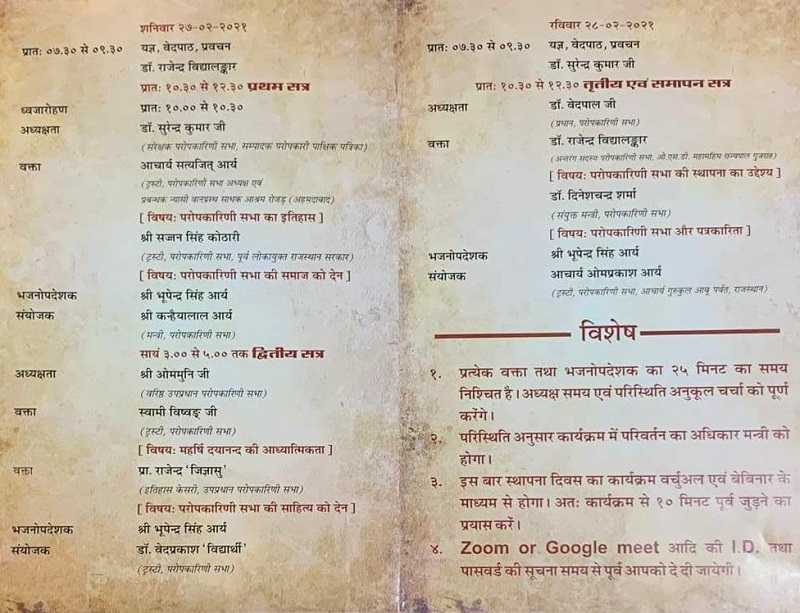 शनिवार २७-०२-२०२१
प्रातः ०७.३० से ०९.३० यज्ञ, वेदपाठ, प्रवचन
डॉ. राजेन्द्र विद्यालङ्कार
प्रातः १०.३० से १२.३० प्रथम सत्र
ध्वजारोहण प्रातः १०.०० से १०.३०
अध्यक्षता डॉ. सुरेन्द्र कुमार जी
(संरक्षक परोपकारिणी सभा, सम्पादक परोपकारी पाक्षिक पत्रिका)
वक्ता आचार्य सत्यजित् आर्य
(ट्रस्टी, परोपकारिणी सभा अध्यक्ष एवं
प्रबन्धक न्यासी वानप्रस्थ साधक आश्रम रोजड़ (अहमदाबाद)
[ विषयः परोपकारिणी सभा का इतिहास ]
श्री सज्जन सिंह कोठारी
(ट्रस्टी, परोपकारिणी सभा, पूर्व लोकायुक्त राजस्थान सरकार)
[ विषयः परोपकारिणी सभा की समाज को देन ]
भजनोपदेशक श्री भूपेन्द्र सिंह आर्य
संयोजक श्री कन्हैयालाल आर्य
(मन्त्री, परोपकारिणी सभा)
सायं ३.०० से ५.०० तक द्वितीय सत्र
अध्यक्षता श्री ओममुनि जी
(वरिष्ठ उपप्रधान परोपकारिणी सभा)
वक्ता स्वामी विष्वङ् जी
(ट्रस्टी, परोपकारिणी सभा)
[ विषयः महर्षि दयानन्द की आध्यात्मिकता ]
वक्ता प्रा. राजेन्द्र 'जिज्ञासु'
(इतिहास केसरी, उपप्रधान परोपकारिणी सभा)
[ विषयः परोपकारिणी सभा की साहित्य को देन ]
भजनोपदेशक श्री भूपेन्द्र सिंह आर्य
संयोजक डॉ. वेदप्रकाश 'विद्यार्थी'
(ट्रस्टी, परोपकारिणी सभा)
रविवार २८-०२-२०२१
प्रातः ०७.३० से ०९.३० यज्ञ, वेदपाठ, प्रवचन
डॉ. सुरेन्द्र कुमार जी
प्रातः १०.३० से १२.३० तृतीय एवं समापन सत्र
अध्यक्षता डॉ. वेदपाल जी
(प्रधान, परोपकारिणी सभा)
वक्ता डॉ. राजेन्द्र विद्यालङ्कार
(अन्तरंग सदस्य परोपकारिणी सभा, ओ.एस.डी. महामहिम राज्यपाल गुजरात)
[ विषयः परोपकारिणी सभा की स्थापना का उद्देश्य ]
डॉ. दिनेशचन्द्र शर्मा
(संयुक्त मन्त्री, परोपकारिणी सभा)
[ विषयः परोपकारिणी सभा और पत्रकारिता ]
भजनोपदेशक श्री भूपेन्द्र सिंह आर्य
संयोजक आचार्य ओमप्रकाश आर्य
(ट्रस्टी, परोपकारिणी सभा, आचार्य गुरुकुल आबू पर्वत, राजस्थान)
विशेष
१. प्रत्येक वक्ता तथा भजनोपदेशक का २५ मिनट का समय
निश्चित है। अध्यक्ष समय एवं परिस्थिति अनुकूल चर्चा को पूर्ण
करेंगे।
२. परिस्थिति अनुसार कार्यक्रम में परिवर्तन का अधिकार मन्त्री को
होगा।
३. इस बार स्थापना दिवस का कार्यक्रम वर्चुअल एवं बेबिनार के
माध्यम से होगा। अतः कार्यक्रम से १० मिनट पूर्व जुड़ने का
प्रयास करें।
४. Zoom or Google meet आदि की I.D. तथा
पासवर्ड की सूचना समय से पूर्व आपको दे दी जायेगी।